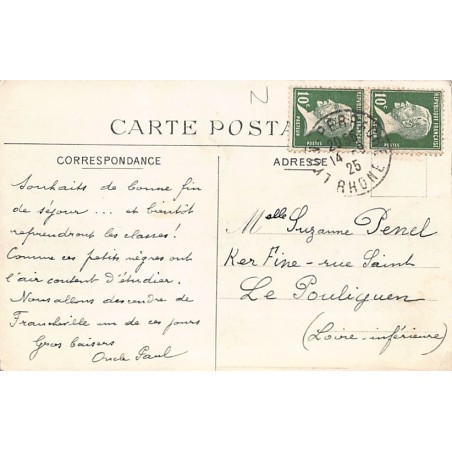 N
10c 10c
REPUBLIQUE FRANÇAISE REPUBLIQUE FRANÇAISE
PASTEUR POSTES POSTES
CARTE POSTA
LYON RHONE
14
25
CORRESPONDANCE
Souhaits de bonne fin
de séjour ... et bientôt
reprendront les classes !
Comme ces petits nègres ont
l'air content d'étudier.
Nous allons descendre de
Francheville un de ces jours
Gros baisers
Oncle Paul
ADRESSE
Melle Suzanne Penel
Ker Fine - rue Saint
Le Pouliguen
(Loire-inférieure)